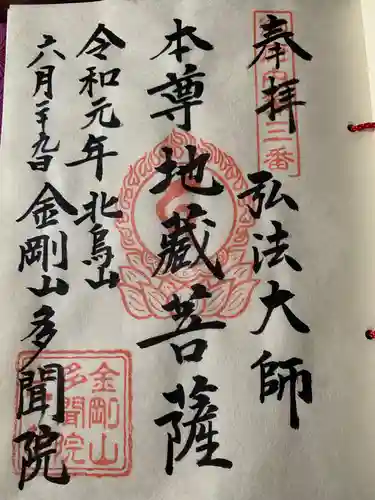 奉拝 弘法大師
本尊地蔵菩薩
令和元年 北烏山
六月二十九日 金剛山多聞院
三番
金剛山
多聞院